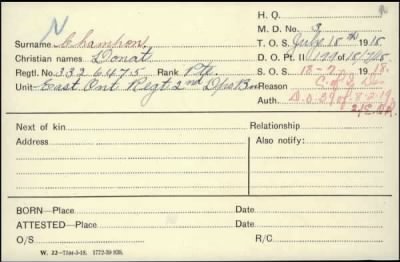 N
H. Q.
M. D. No. 3
Surname Champion
T. O. S. July 15th 1918
Christian names Donat
D. O. Pt. II 199 of 18/7/18
Regtl. No. 3326475 Rank Pte
S. O. S. 18-7 18.
Unit East. Ont Regt. 2nd Dpo Bn
Reason
Auth. D.O. 29 of 8-2-19
Next of kin
Relationship
Address
Also notify:
BORN—Place
Date
ATTESTED—Place
Date
O/S
R/C